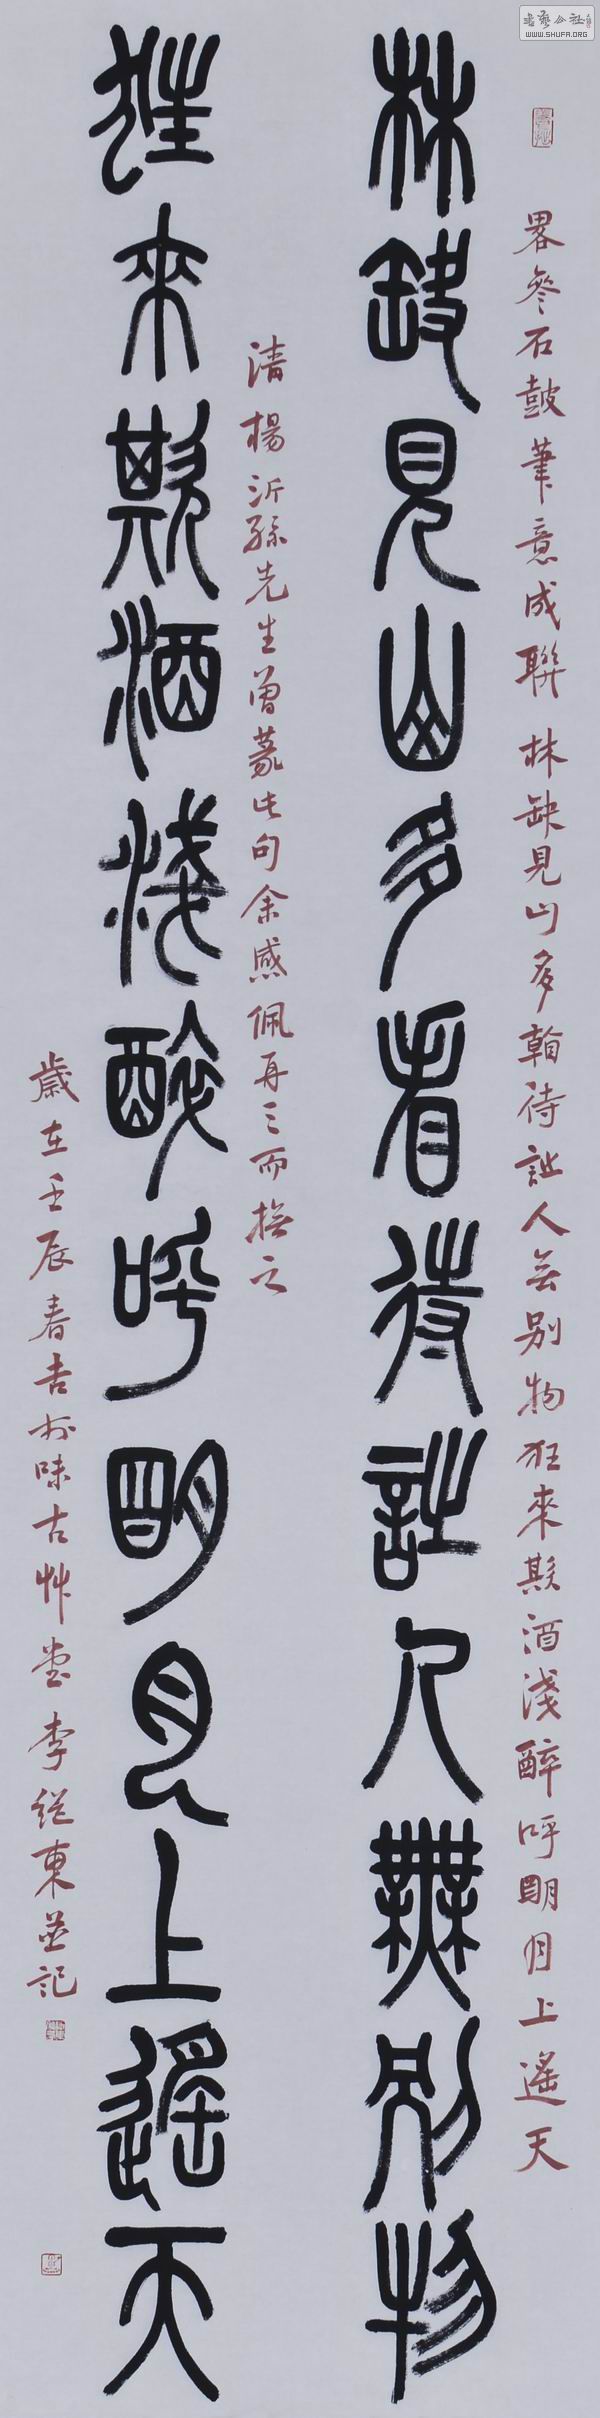 書藝公社
WWW.SHUFA.ORG
畧參石鼓筆意成聯 林缺見山多看待詩人無別物狂來欺酒淺醉呼朙月上遙天
林缺見山多看待詩人無別物
清楊沂孫先生曾篆此句余感佩再三而撫之
狂來欺酒淺醉呼朙月上遙天
歲在壬辰春吉於味古艸堂李繼東並記